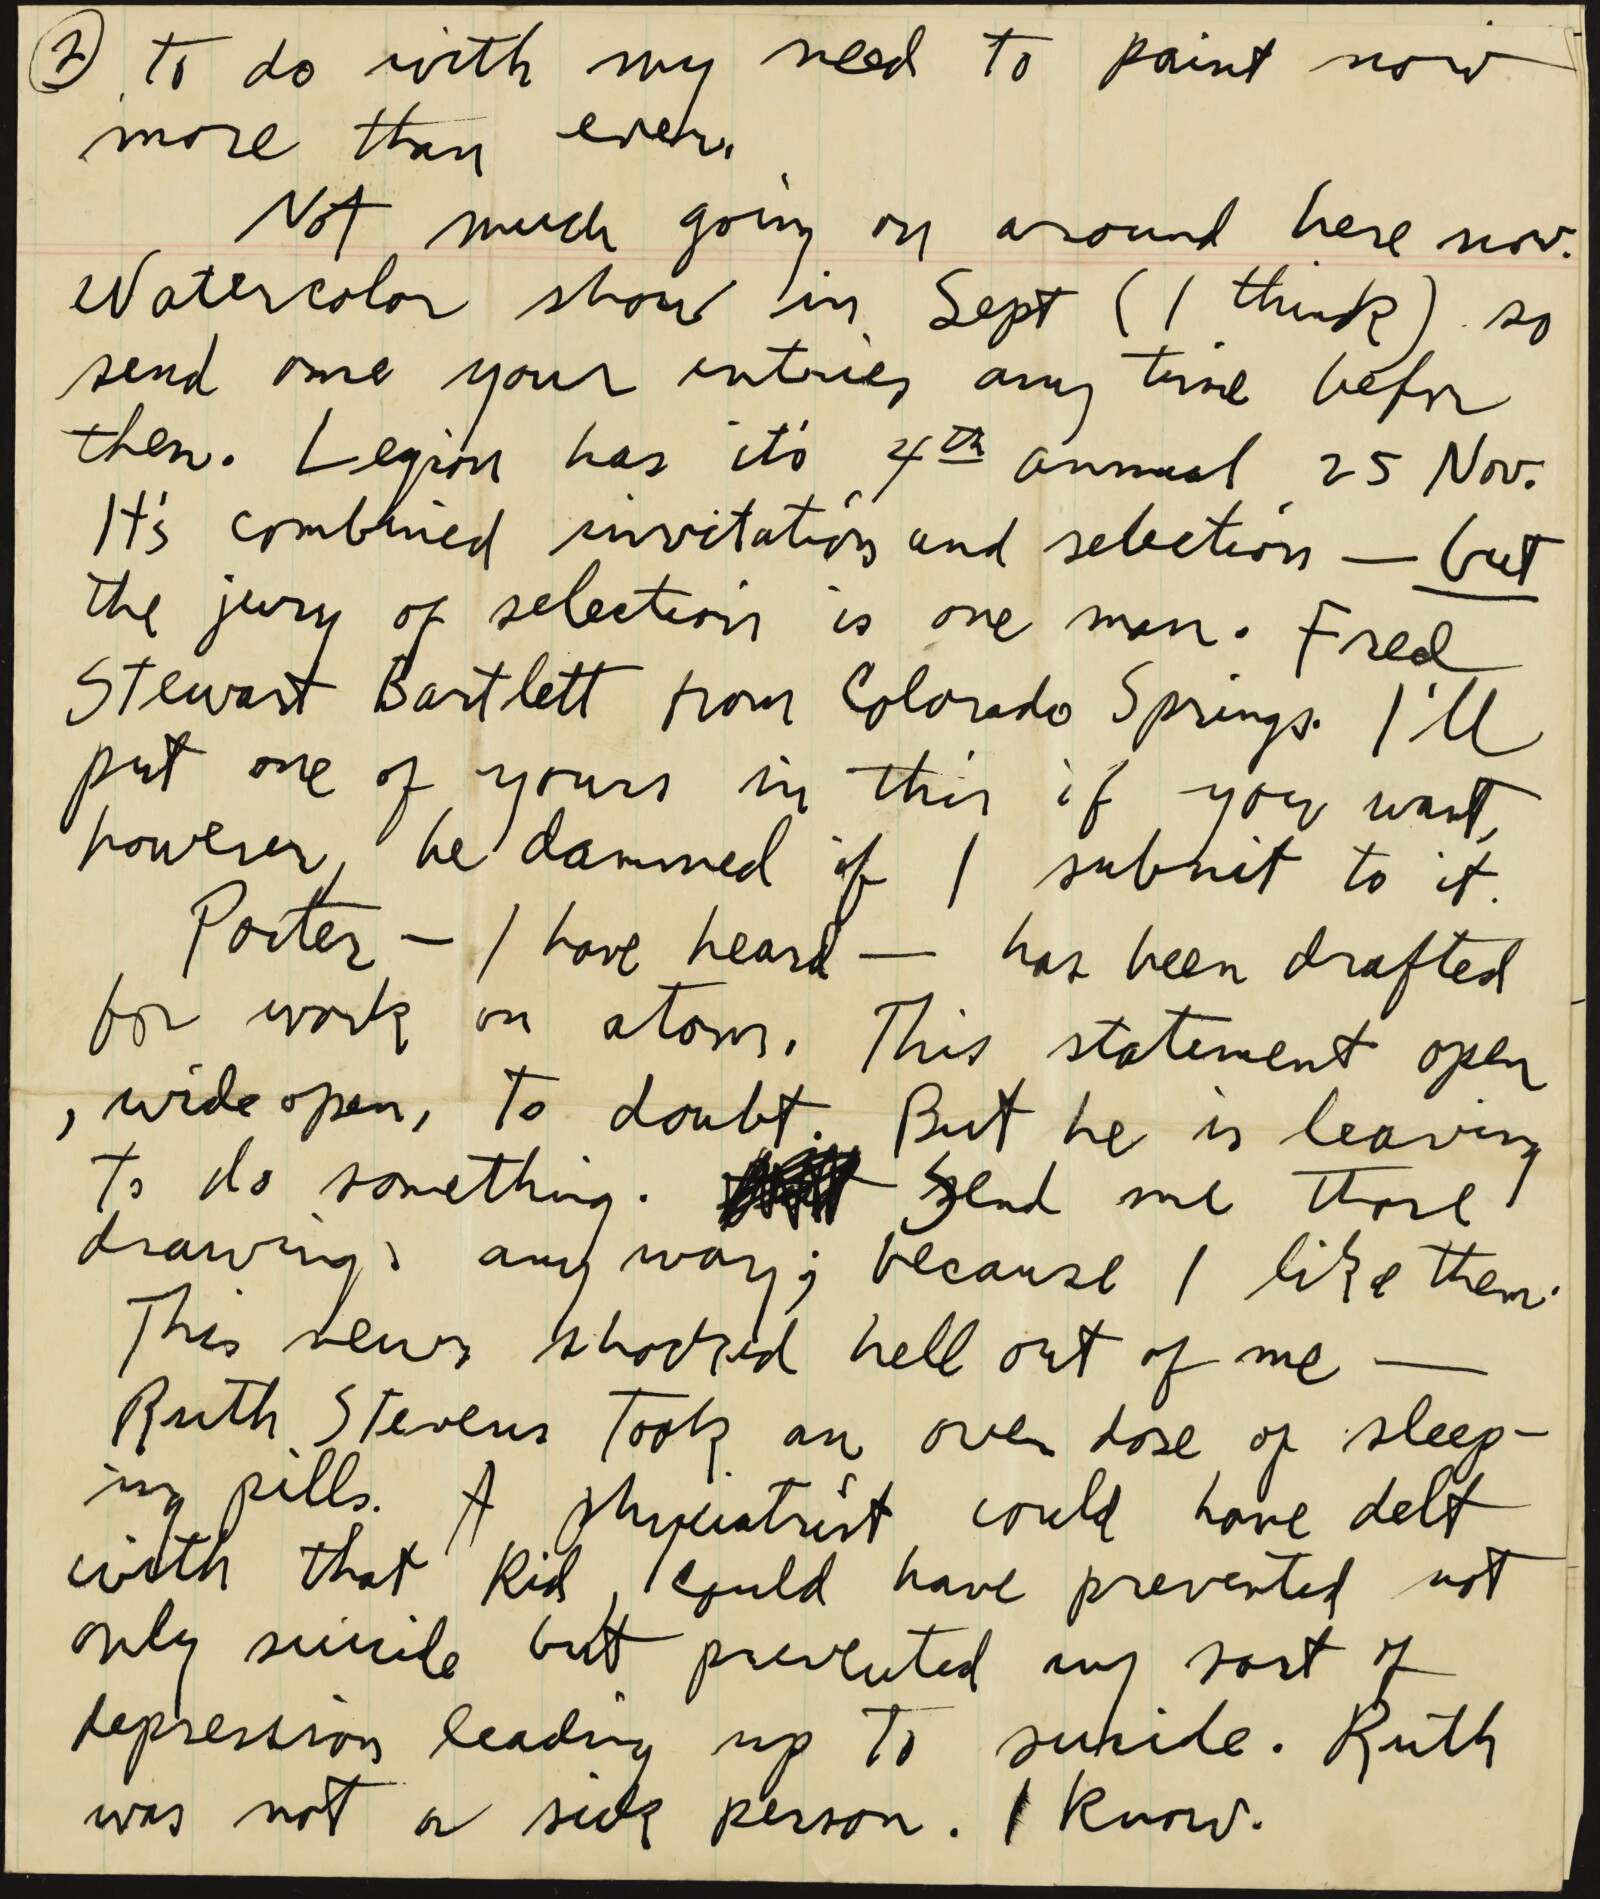 2 To do with my need to paint now
more than ever.
Not much going on around here now.
Watercolor show in Sept (I think) so
send me your entries any time befor
then. Legion has it's 4th annual 25 Nov.
It's combined invitation and selection — but
the jury of selection is one man. Fred
Stewart Bartlett from Colorado Springs. I'll
put one of yours in this if you want,
however, be damned if I submit to it.
Porter — I have heard — has been drafted
for work on atom. This statement open
, wide open, to doubt. But he is leaving
to do something. Send me those
drawings any way; because I like them.
This news shocked hell out of me —
Ruth Stevens Took an over dose of sleep-
ing pills. A could have delt
with that kid, could have prevented not
only suicide but prevented any sort of
depression leading up To suicide. Ruth
was not a sick person. I know.